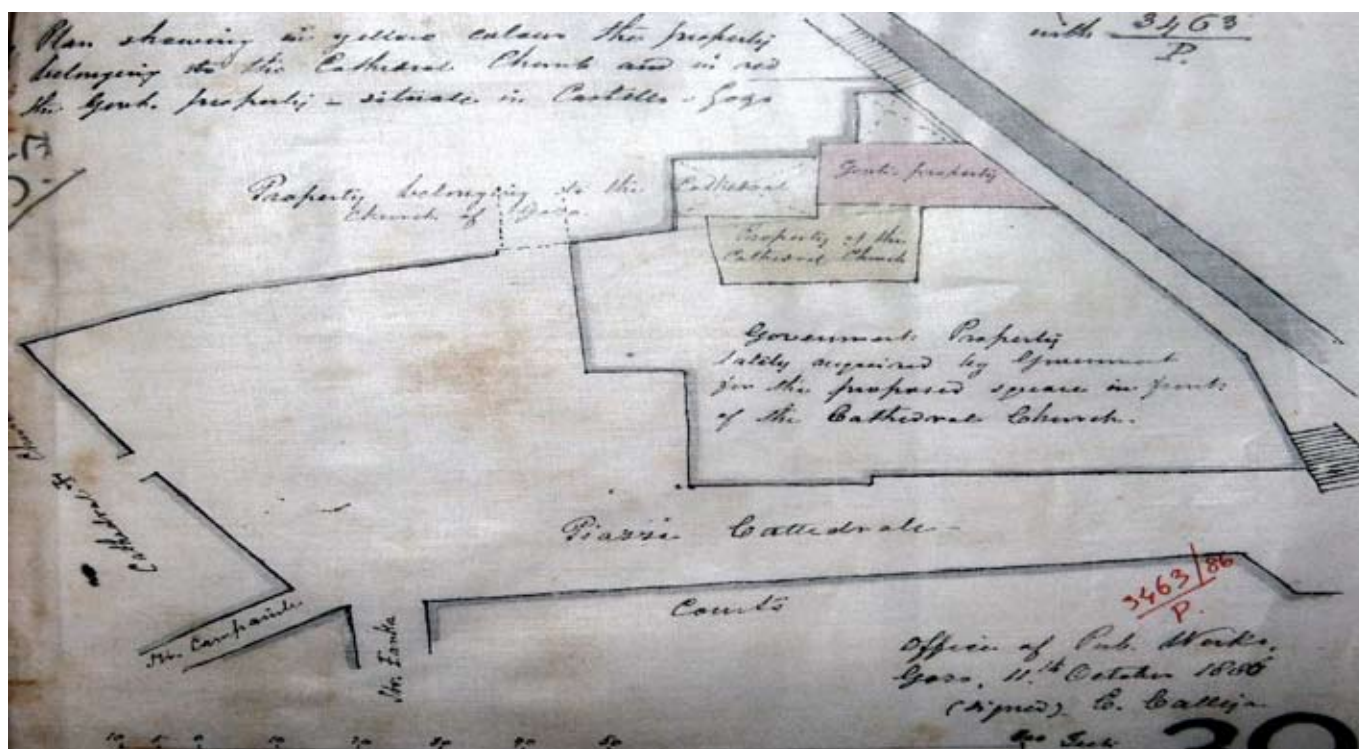 Plan shewing in yellow colour the property
belonging to the Cathedral Church and in red
the Govt. property - situate in Castello - Gozo
with 3463
P.
Property belonging to the Cathedral
Church of Gozo.
Govt. property
Property of the
Cathedral Church
Government Property
lately acquired by Government
for the proposed square in front
of the Cathedral Church.
Cathedral
Piazza Cattedrale
Courts
Str.
Str.
3463/86
P.
Office of Pub. Works.
Gozo, 11.th October 1886
(signed) E. Calleja
10 5 0 10 20 30 40 50
Feet